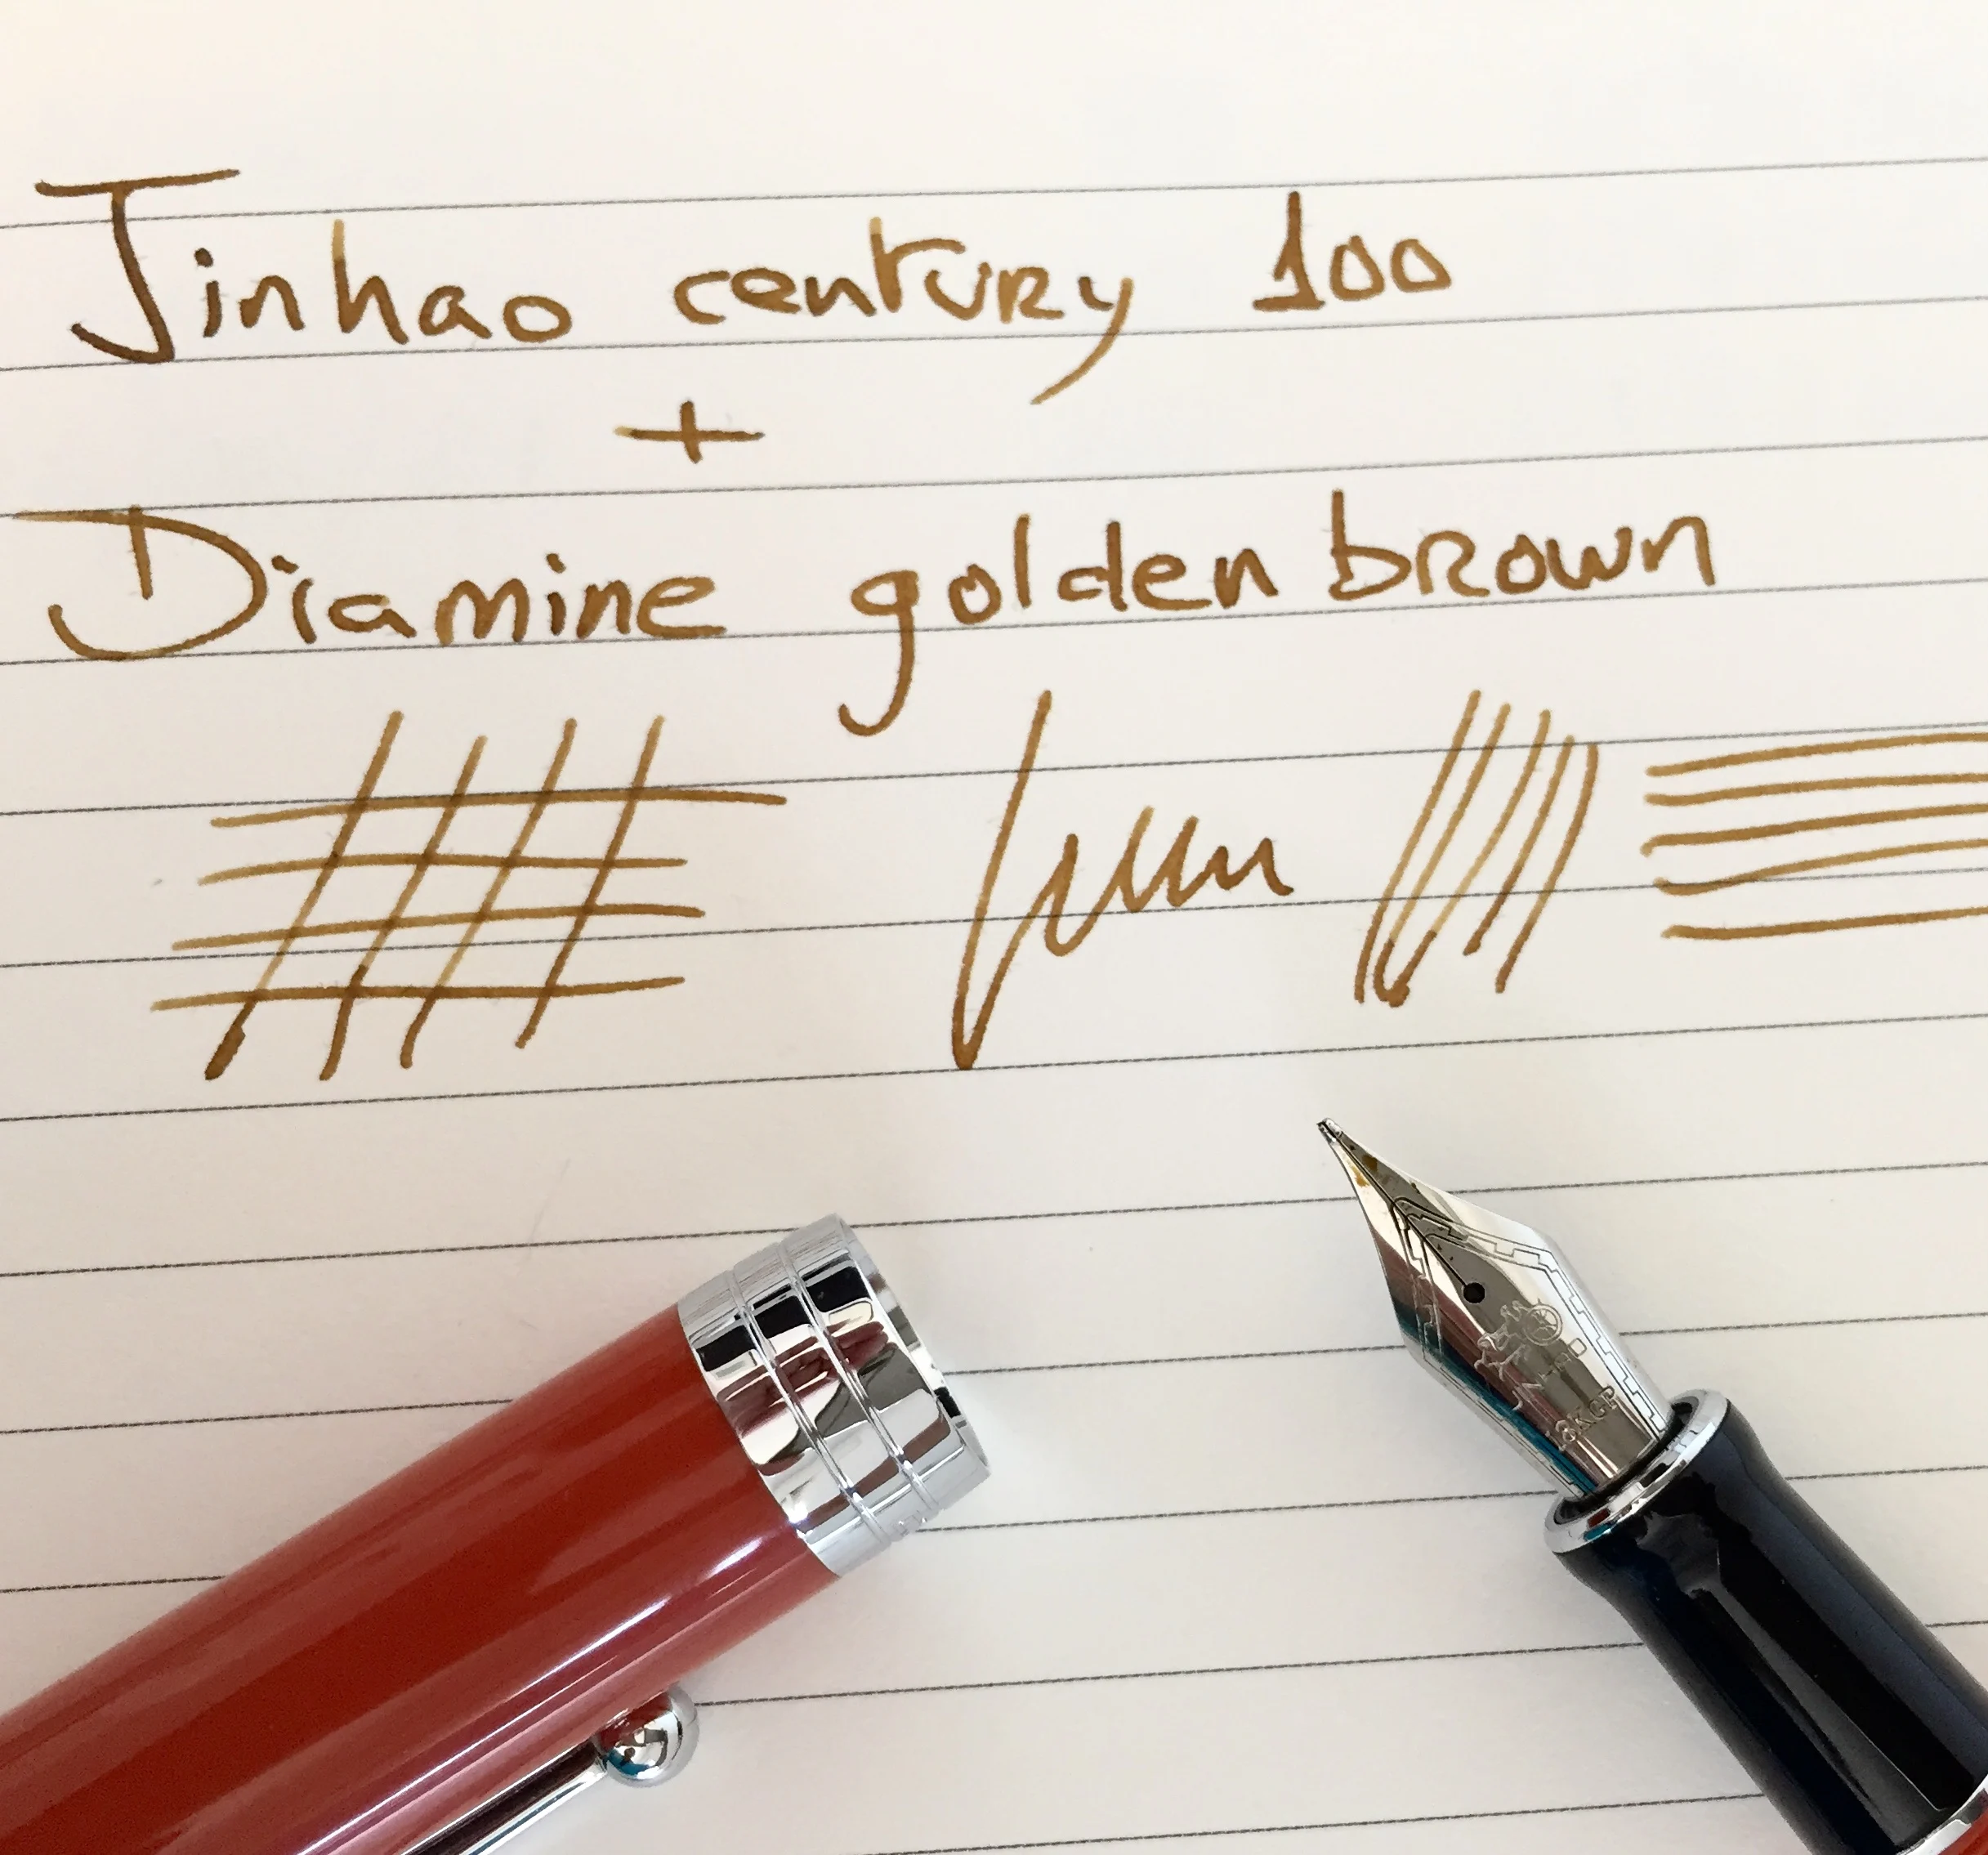 Jinhao century 100
+
Diamine golden brown
18KGP